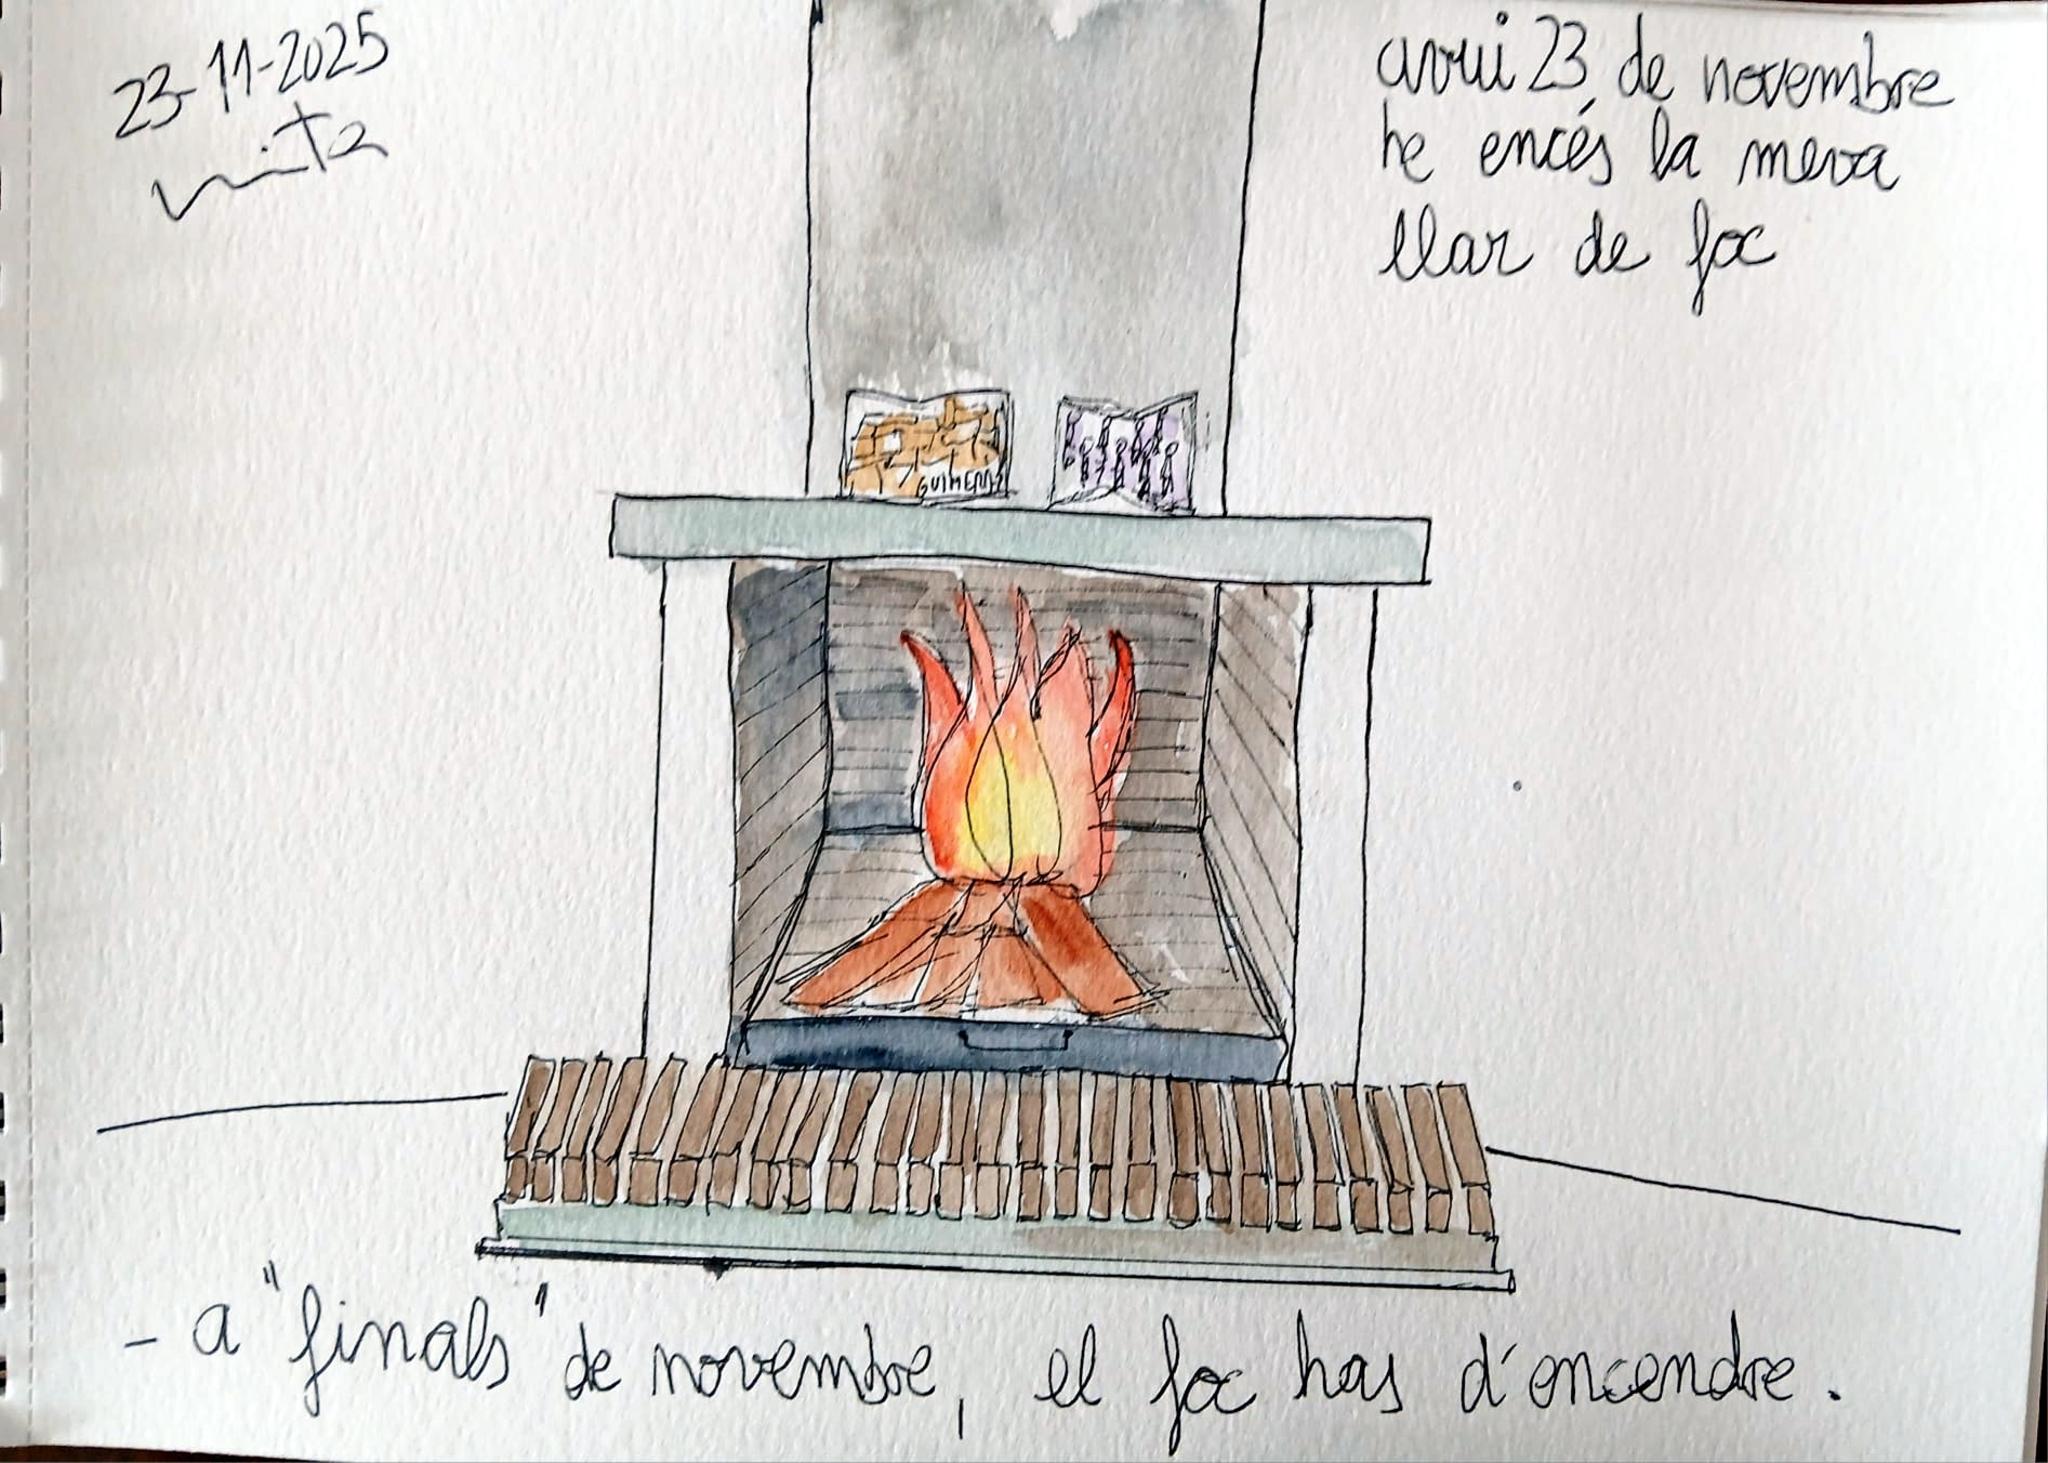 23-11-2025
avui 23 de novembre
he encés la meva
llar de foc
- a "finals" de novembre, el foc has d'encendre.